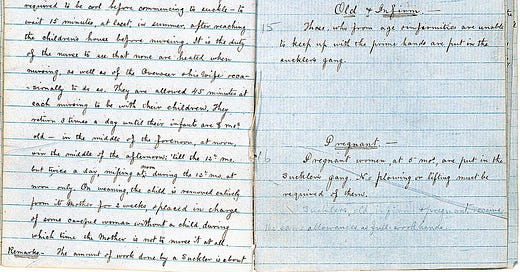 required to be cool before commencing to suckle - to
wait 15 minutes, at least, in summer, after reaching
the children's house before nursing. It is the duty
of the nurse to see that none are heated when
nursing, as well as of the Overseer & his Wife occa-
-sionally to do so. They are allowed 45 minutes at
each nursing to be with their children. They
return 3 times a day until their infants are 8 mos.
old - in the middle of the forenoon, at noon,
& in the middle of the afternoon: 'till the 12th mo.
but twice a day, missing at noon; during the 12th mo. at
noon only. On weaning, the child is removed entirely
from its Mother for 2 weeks, & placed in charge
of some careful woman without a child, during
which time the Mother is not to nurse it at all.
Remarks - The amount of work done by a Suckler is about
Old & Infirm -
15 Those, who from age & infirmities are unable
to keep up with the prime hands are put in the
suckler's gang.
Pregnant -
16 Pregnant women, at 5 mos. are put in the
Suckler's gang. No plowing or lifting must be
required of them.
Sucklers, old, infirm & pregnant receive
the same allowances as full-work hands.